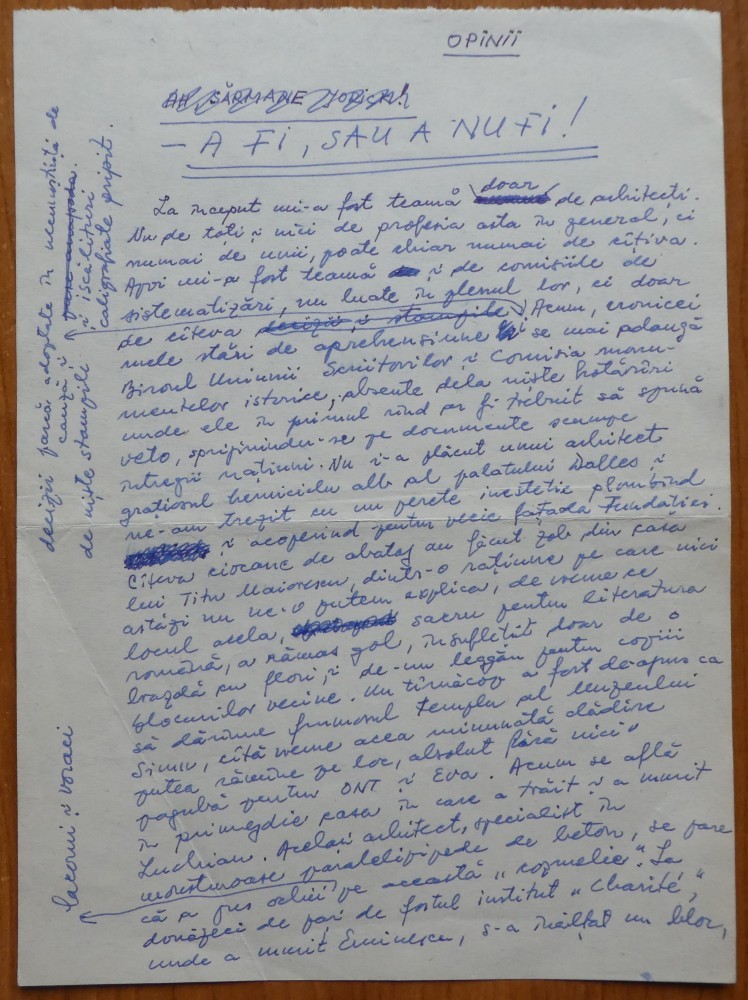 OPINII
AH SĂRMANE YORICK!
— A FI, SAU A NU FI!
La început mi-a fost teamă doar de arhitecți.
Nu de toți și nici de profesia asta în general, ci
numai de unii, poate chiar numai de cîțiva.
Apoi mi-a fost teamă și de comisiile de
sistematizări, nu luate în plenul lor, ci doar
de cîteva decizii și stampile. Acum, cronicei
mele stări de aprehensiune i se mai adaugă
Biroul Uniunii Scriitorilor și Comisia monu-
mentelor istorice, absente dela niște hotărîri
unde ele în primul rînd ar fi trebuit să spună
veto, sprijinindu-se pe documente scumpe
întregii națiuni. Nu i-a plăcut unui arhitect
grațiosul hemiciclu alb al palatului Dalles și
ne-am trezit cu un perete inestetic plombînd
și acoperind pentru vecie fațada Fundației.
Cîteva ciocane de abataj au făcut zob din casa
lui Titu Maiorescu, dintr-o rațiune pe care nici
astăzi nu ne-o putem explica, de vreme ce
locul acela, sacru pentru literatura
română, a rămas gol, însuflețit doar de o
brazdă cu flori și de-un leagăn pentru copiii
blocurilor vecine. Un tîrnăcop a fost de-ajuns ca
să dărîme frumosul templu al Muzeului
Simu, cîtă vreme acea minunată clădire
putea rămîne pe loc, absolut fără nici o
pagubă pentru ONT și Eva. Acum se află
în primejdie casa în care a trăit și a murit
Luchian. Același arhitect, specialist în
monstruoase paralelipipede de beton, se pare
că a pus ochii pe această „cozmelie". La
doi pași de fostul institut „Charité",
unde a murit Eminescu, s-a înălțat un bloc,
decizii fără adoptate în cunoștință de
cauză și
de niște stampile și iscălituri
caligrafiate pripit.
lacomi și voraci